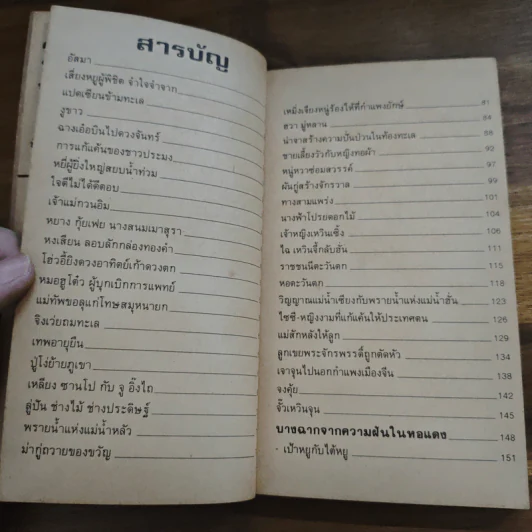 สารบัญ
อัสมา
เสี่ยงหยูผู้พิชิต จำใจจำจาก
แปดเซียนข้ามทะเล
งูขาว
ฉางเอ๋อบินไปดวงจันทร์
การแก้แค้นของชาวประมง
หยี่ผู้ยิ่งใหญ่สยบน้ำท่วม
ใจดีไม่ได้ดีตอบ
เจ้าแม่กวนอิม
หยาง กุ้ยเฟย นางสนมเมาสุรา
หงเสียน ลอบลักกล่องทองคำ
โฮ่วอี้ยิงดวงอาทิตย์เก้าดวงตก
หมอฮูโต๋ว ผู้บุกเบิกการแพทย์
แม่ทัพขอลุแก่โทษสมุหนายก
จิงเว่ยถมทะเล
เทพอายุยืน
ปู่โง่ย้ายภูเขา
เหลียง ซานโป กับ จู อิ๊งไถ
ลู่ปัน ช่างไม้ ช่างประดิษฐ์
พรายน้ำแห่งแม่น้ำหลัว
ม่ากู่ถวายของขวัญ
เหมิ่งเจียงหนู่ร้องไห้ที่กำแพงยักษ์ 81
ฮวา มู่หลาน 84
น่าจาสร้างความปั่นป่วนในท้องทะเล 88
ชายเลี้ยงวัวกับหญิงทอผ้า 93
หนู่หวาซ่อมสวรรค์ 97
ผันกู่สร้างจักรวาล 99
ทางสามแพร่ง 101
นางฟ้าโปรยดอกไม้ 104
เจ้าหญิงเหวินเซิ้ง 106
ไฉ เหวินจี้กลับฮั่น 111
ราชชนนีตะวันตก 115
หอตะวันตก 118
วิญญาณแม่น้ำเซียงกับพรายน้ำแห่งแม่น้ำฮั่น 123
ไซซี-หญิงงามที่แก้แค้นให้ประเทศตน 126
แม่สักหลังให้ลูก 129
ลูกเขยพระจักรพรรดิ์ถูกตัดหัว 134
เจาจุนไปนอกกำแพงเมืองจีน 138
จงคุ้ย 142
จั๊วเหวินจุน 145
บางฉากจากความฝันในหอแดง 148
- เป้าหยูกับไต้หยู 151